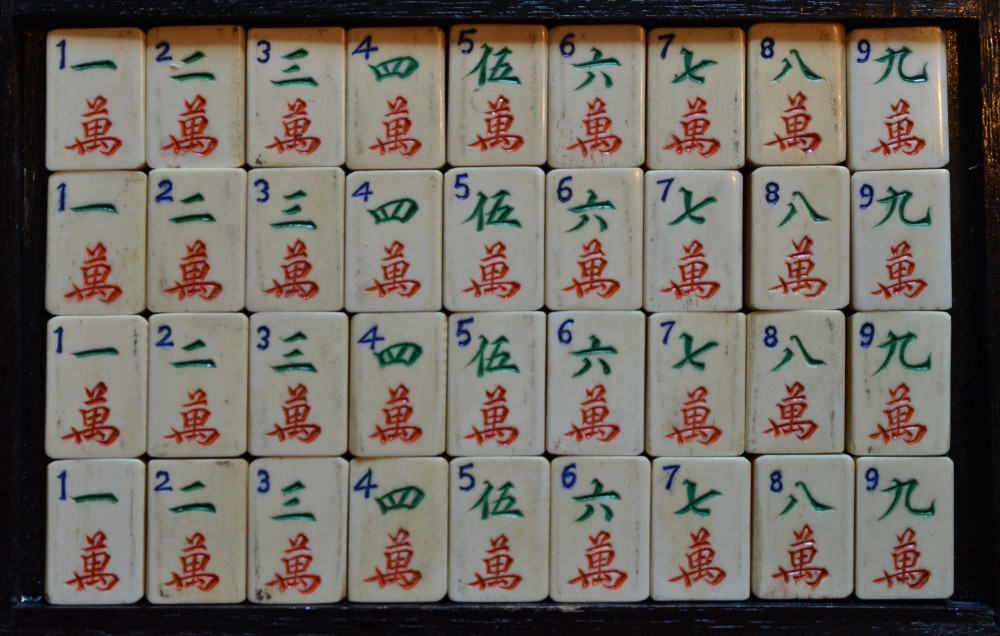 1一 2二 3三 4四 5伍 6六 7七 8八 9九
萬 萬 萬 萬 萬 萬 萬 萬 萬
1一 2二 3三 4四 5伍 6六 7七 8八 9九
萬 萬 萬 萬 萬 萬 萬 萬 萬
1一 2二 3三 4四 5伍 6六 7七 8八 9九
萬 萬 萬 萬 萬 萬 萬 萬 萬
1一 2二 3三 4四 5伍 6六 7七 8八 9九
萬 萬 萬 萬 萬 萬 萬 萬 萬